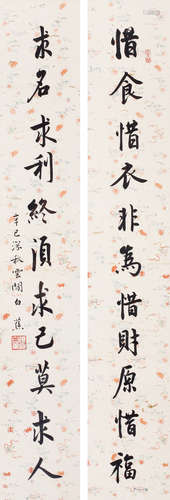 惜食惜衣非為惜財原惜福
求名求利終須求己莫求人
辛巳深秋雲間白蕉